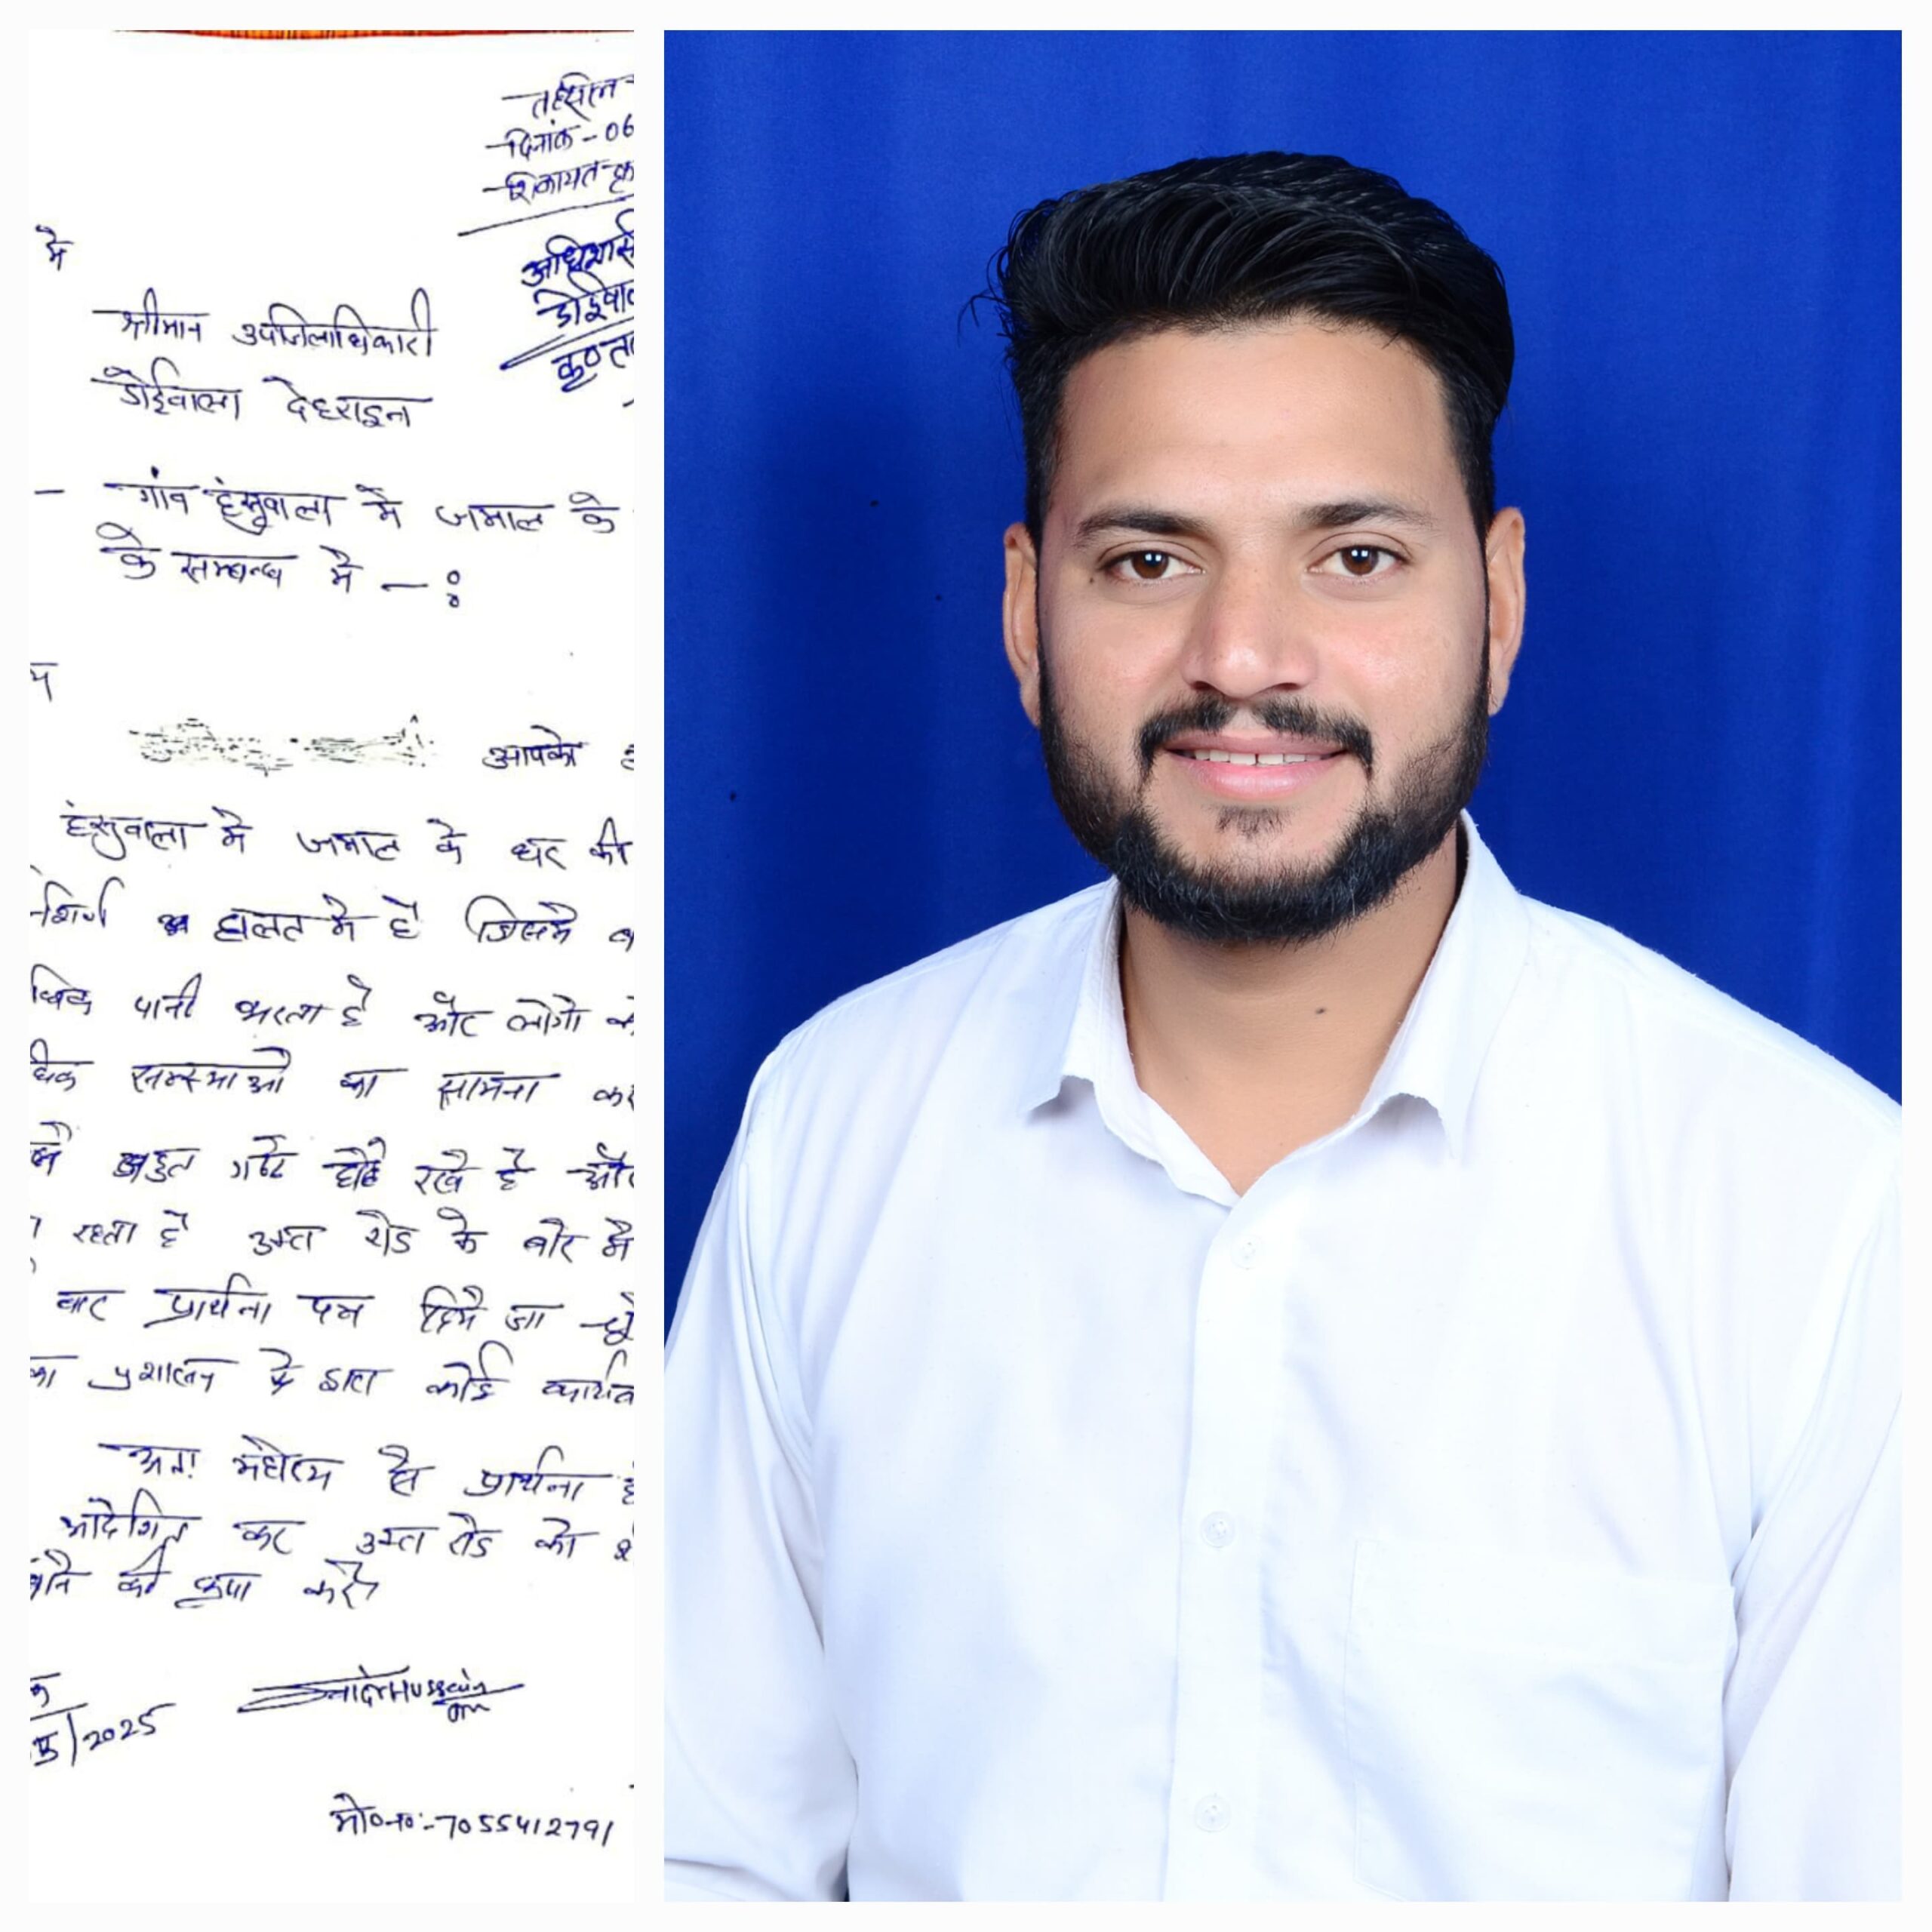 तहसील
दिनांक - 06
शिकायत क्र
अधिशासी
डोईवाल
कृ०
में
श्रीमान उपजिलाधिकारी
डोईवाला देहरादून
- गांव हंसुवाला में जमाल के
के सम्बन्ध में - :
य
आपको
हंसुवाला में जमाल के घर की
हालत में है जिसमें
धिक पानी भरता है और लोगो
धिक समस्याओं का सामना कर
बहुत गढ्ढे हो रखे है और
रहता है उक्त रोड के बारे में
बार प्रार्थना पत्र दिये जा चुके
का प्रशासन के द्वारा कोई कार्यव
अतः महोदय से प्रार्थना है
आदेशित कर उक्त रोड को
की कृपा करें
क
5/2025
Hussain
मो०न०:-7055412791